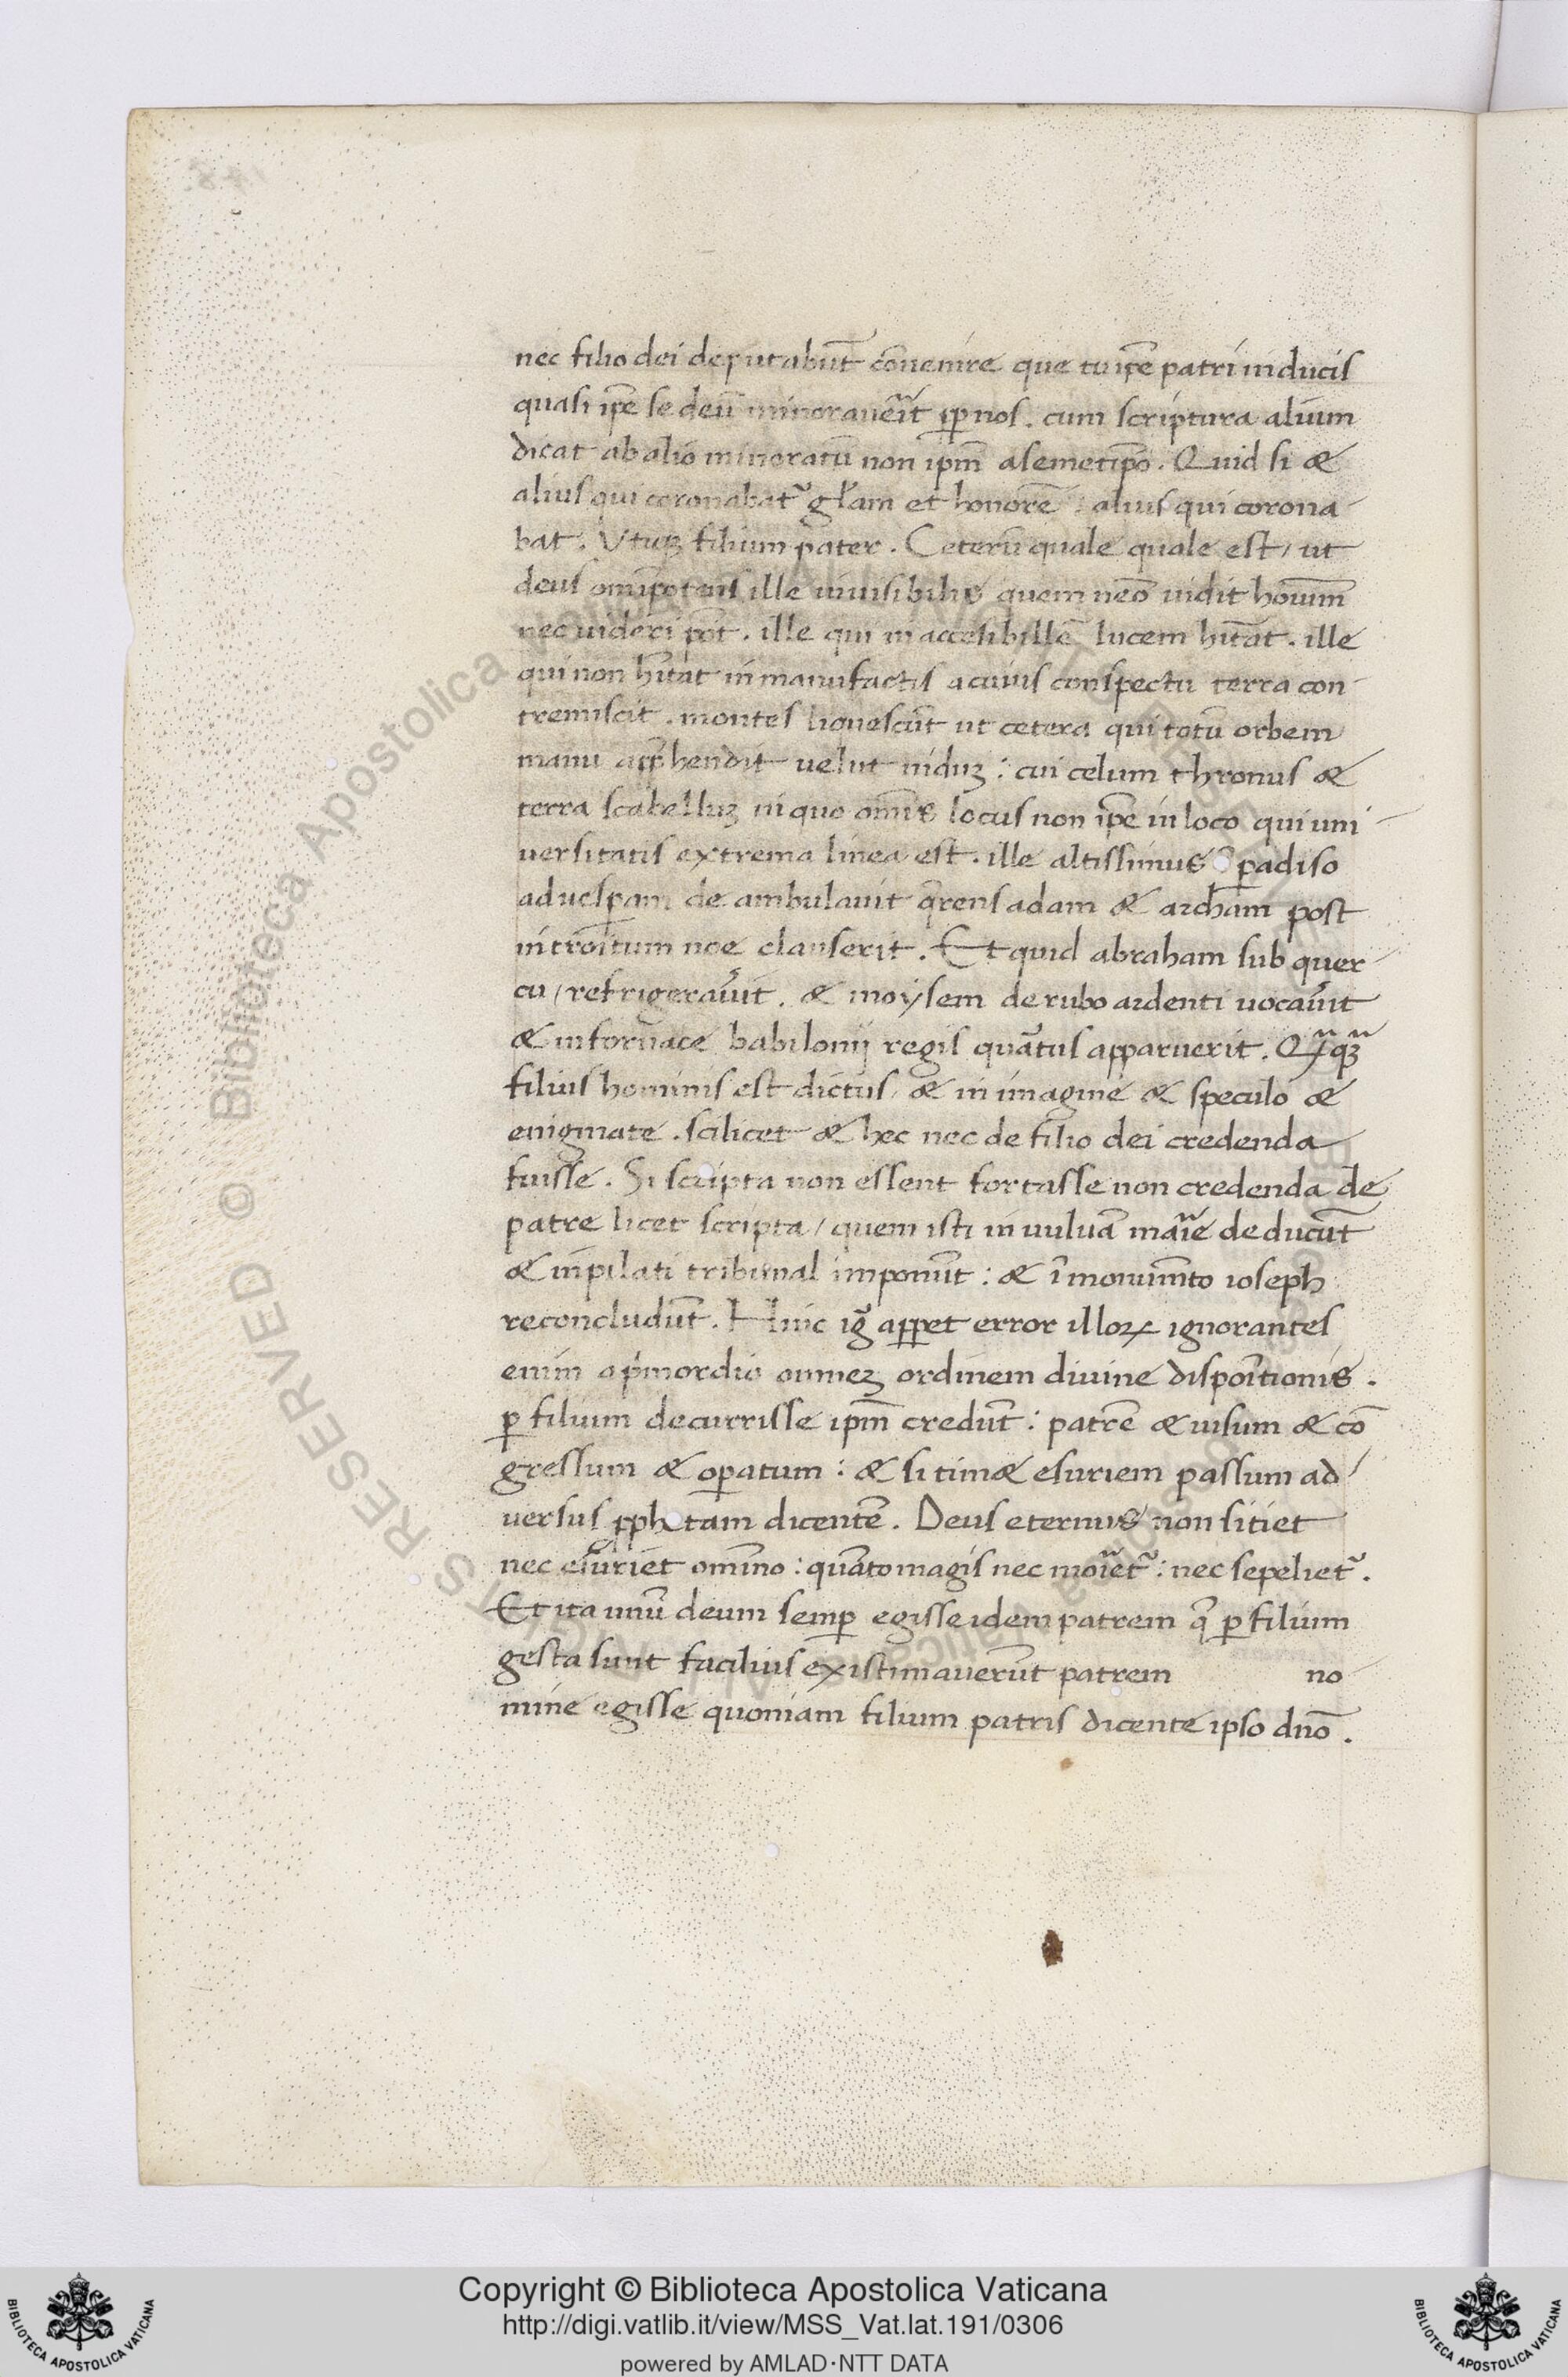 nec filio dei deputabūt cōvenire que tu ip̄e patri inducis
quasi ip̄e se deū minoraverit ꝓp nos . cum scriptura alium
dicat ab alio minoratū non ip̄m a semetip̄o . Quid si &
alius qui coronabat᷑ gl̄am et honorē : alius qui corona
bat . Utuꝫ filium pater . Ceterū quale quale est / ut
deus omīpotens ille invisibilis quem nēo vidit hominum
nec videri pōt . ille qui inaccesibillē lucem hītat . ille
qui non hītat in manufactis a cuius conspectu terra con
tremiscit . montes liquescūt ut cetera qui totū orbem
manu app̄hendit velut niduꝫ : cui celum thronus &
terra scabelluꝫ in quo om̄is locus non ip̄e in loco qui uni
versitatis extrema linea est . ille altissimus ꝑadiso
ad vesꝑam de ambulavit q̄rens adam & archam post
introitum noe clauserit . Et quid abraham sub quer
cu / refrigeravit . & moysem de rubo ardenti vocavit
& in fornace babilonij regis quātus apparuerit . Q̄q̄ꝫ
filius hominis est dictus / & in imagine & speculo &
enigmate . scilicet & hec nec de filio dei credenda
fuisse . Si scripta non essent fortasse non credenda de
patre licet scripta / quem isti in vulvā marīe deducūt
& in pilati tribunal imponūt : & ī monumēto ioseph
recōncludūt . Hinc ig̊ apꝑet error illoꝝ ignorantes
enim a pͥmordio omneꝫ ordinem divine dispoītionis .
ꝑ filium decurrisse ip̄m credūt : patrē & visum & cō
gressum & oꝑatum : & sitim & esuriem passum ad
versus ꝓphetam dicentē . Deus eternus non sitiet
nec esuriet omīno : quāto magis nec moriet᷑ : nec sepeliet᷑ .
Et ita unū deum semꝑ egisse idem patrem q̄ ꝑ filium
gesta sunt facilius existimaverūt patrem no
mine egisse quoniam filium patris dicente ipso dn̄o .
Copyright © Biblioteca Apostolica Vaticana
http://digi.vatlib.it/view/MSS_Vat.lat.191/0306
powered by AMLAD·NTT DATA